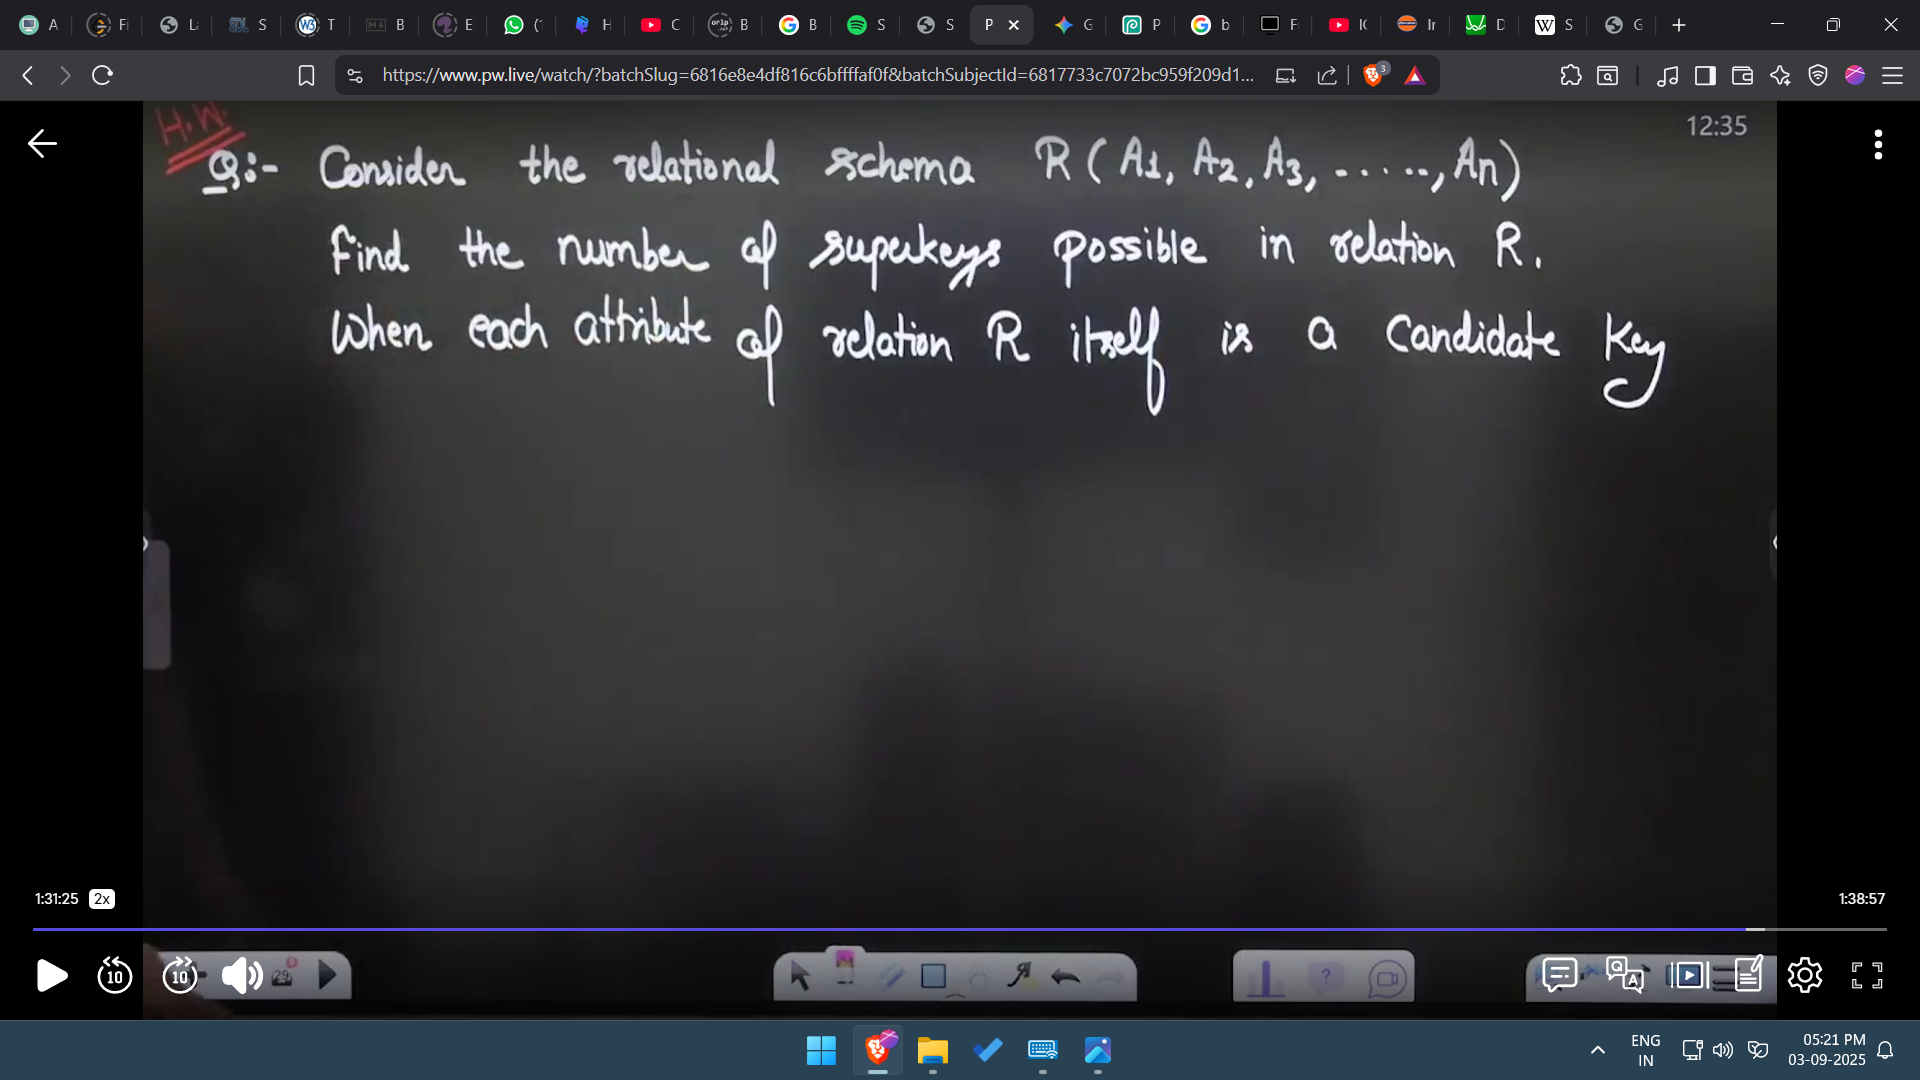 A
Fi
S
T
B
E
H
C
B
B
S
S
P
G
P
b
F
Ir
D
S
G
https://www.pw.live/watch/?batchSlug=6816e8e4df816c6bffffaf0f&batchSubjectId=6817733c7072bc959f209d1...
3
H.W.
12:35
Q:- Consider the relational schema R(A1, A2, A3, ......, An)
Find the number of superkeys possible in relation R.
When each attribute of relation R itself is a Candidate Key
1:31:25 2x
1:38:57
10
10
29
ENG
IN
05:21 PM
03-09-2025